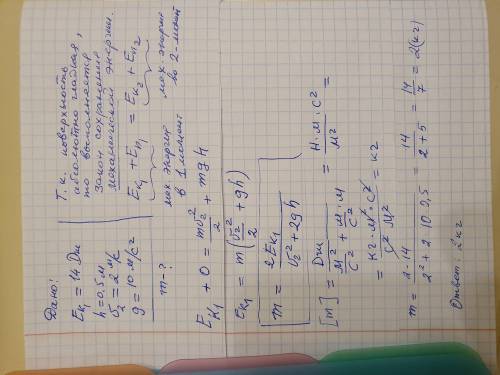 Дано:
Eк₁ = 14 Дж
h = 0,5 м
v₂ = 2 м/с
g = 10 м/с²
m - ?
Т.к. поверхность
абсолютно гладкая,
то выполняется
Закон сохранения
механической энергии.
Eк₁ + Eп₁ = Eк₂ + Eп₂
мех энергия
в 1 момент
мех энергия
во 2-момент
Eк₁ + 0 = mv₂²/2 + mgh
Eк₁ = m(v₂²/2 + gh)
m = 2Eк₁/(v₂² + 2gh)
[m] = Дж/(м²/с² + м·м/с²) = Н·м·с²/м² =
= кг·м²·с²/(с²·м²) = кг
m = 2·14/(2² + 2·10·0,5) = 14/(2+5) = 14/7 = 2(кг)
Ответ: 2кг